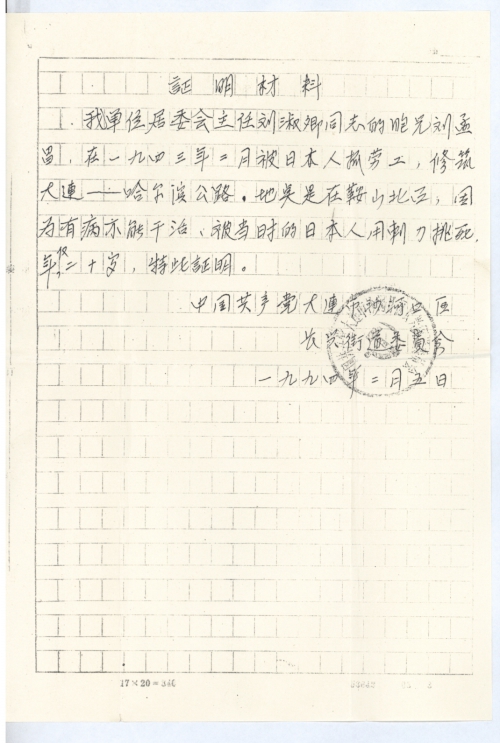 証明材料
我单位居委会主任刘淑卿同志的胞兄刘孟
昌，在一九四三年二月被日本人抓劳工，修筑
大連——哈尔滨公路。地㚑是在鞍山北边，因
为有病不能干活、被当时的日本人用刺刀挑死，
年仅二十岁，特此証明。
中国共产党大連市沙河口区
长兴街道委員会
一九九四年二月五日
17×20=340